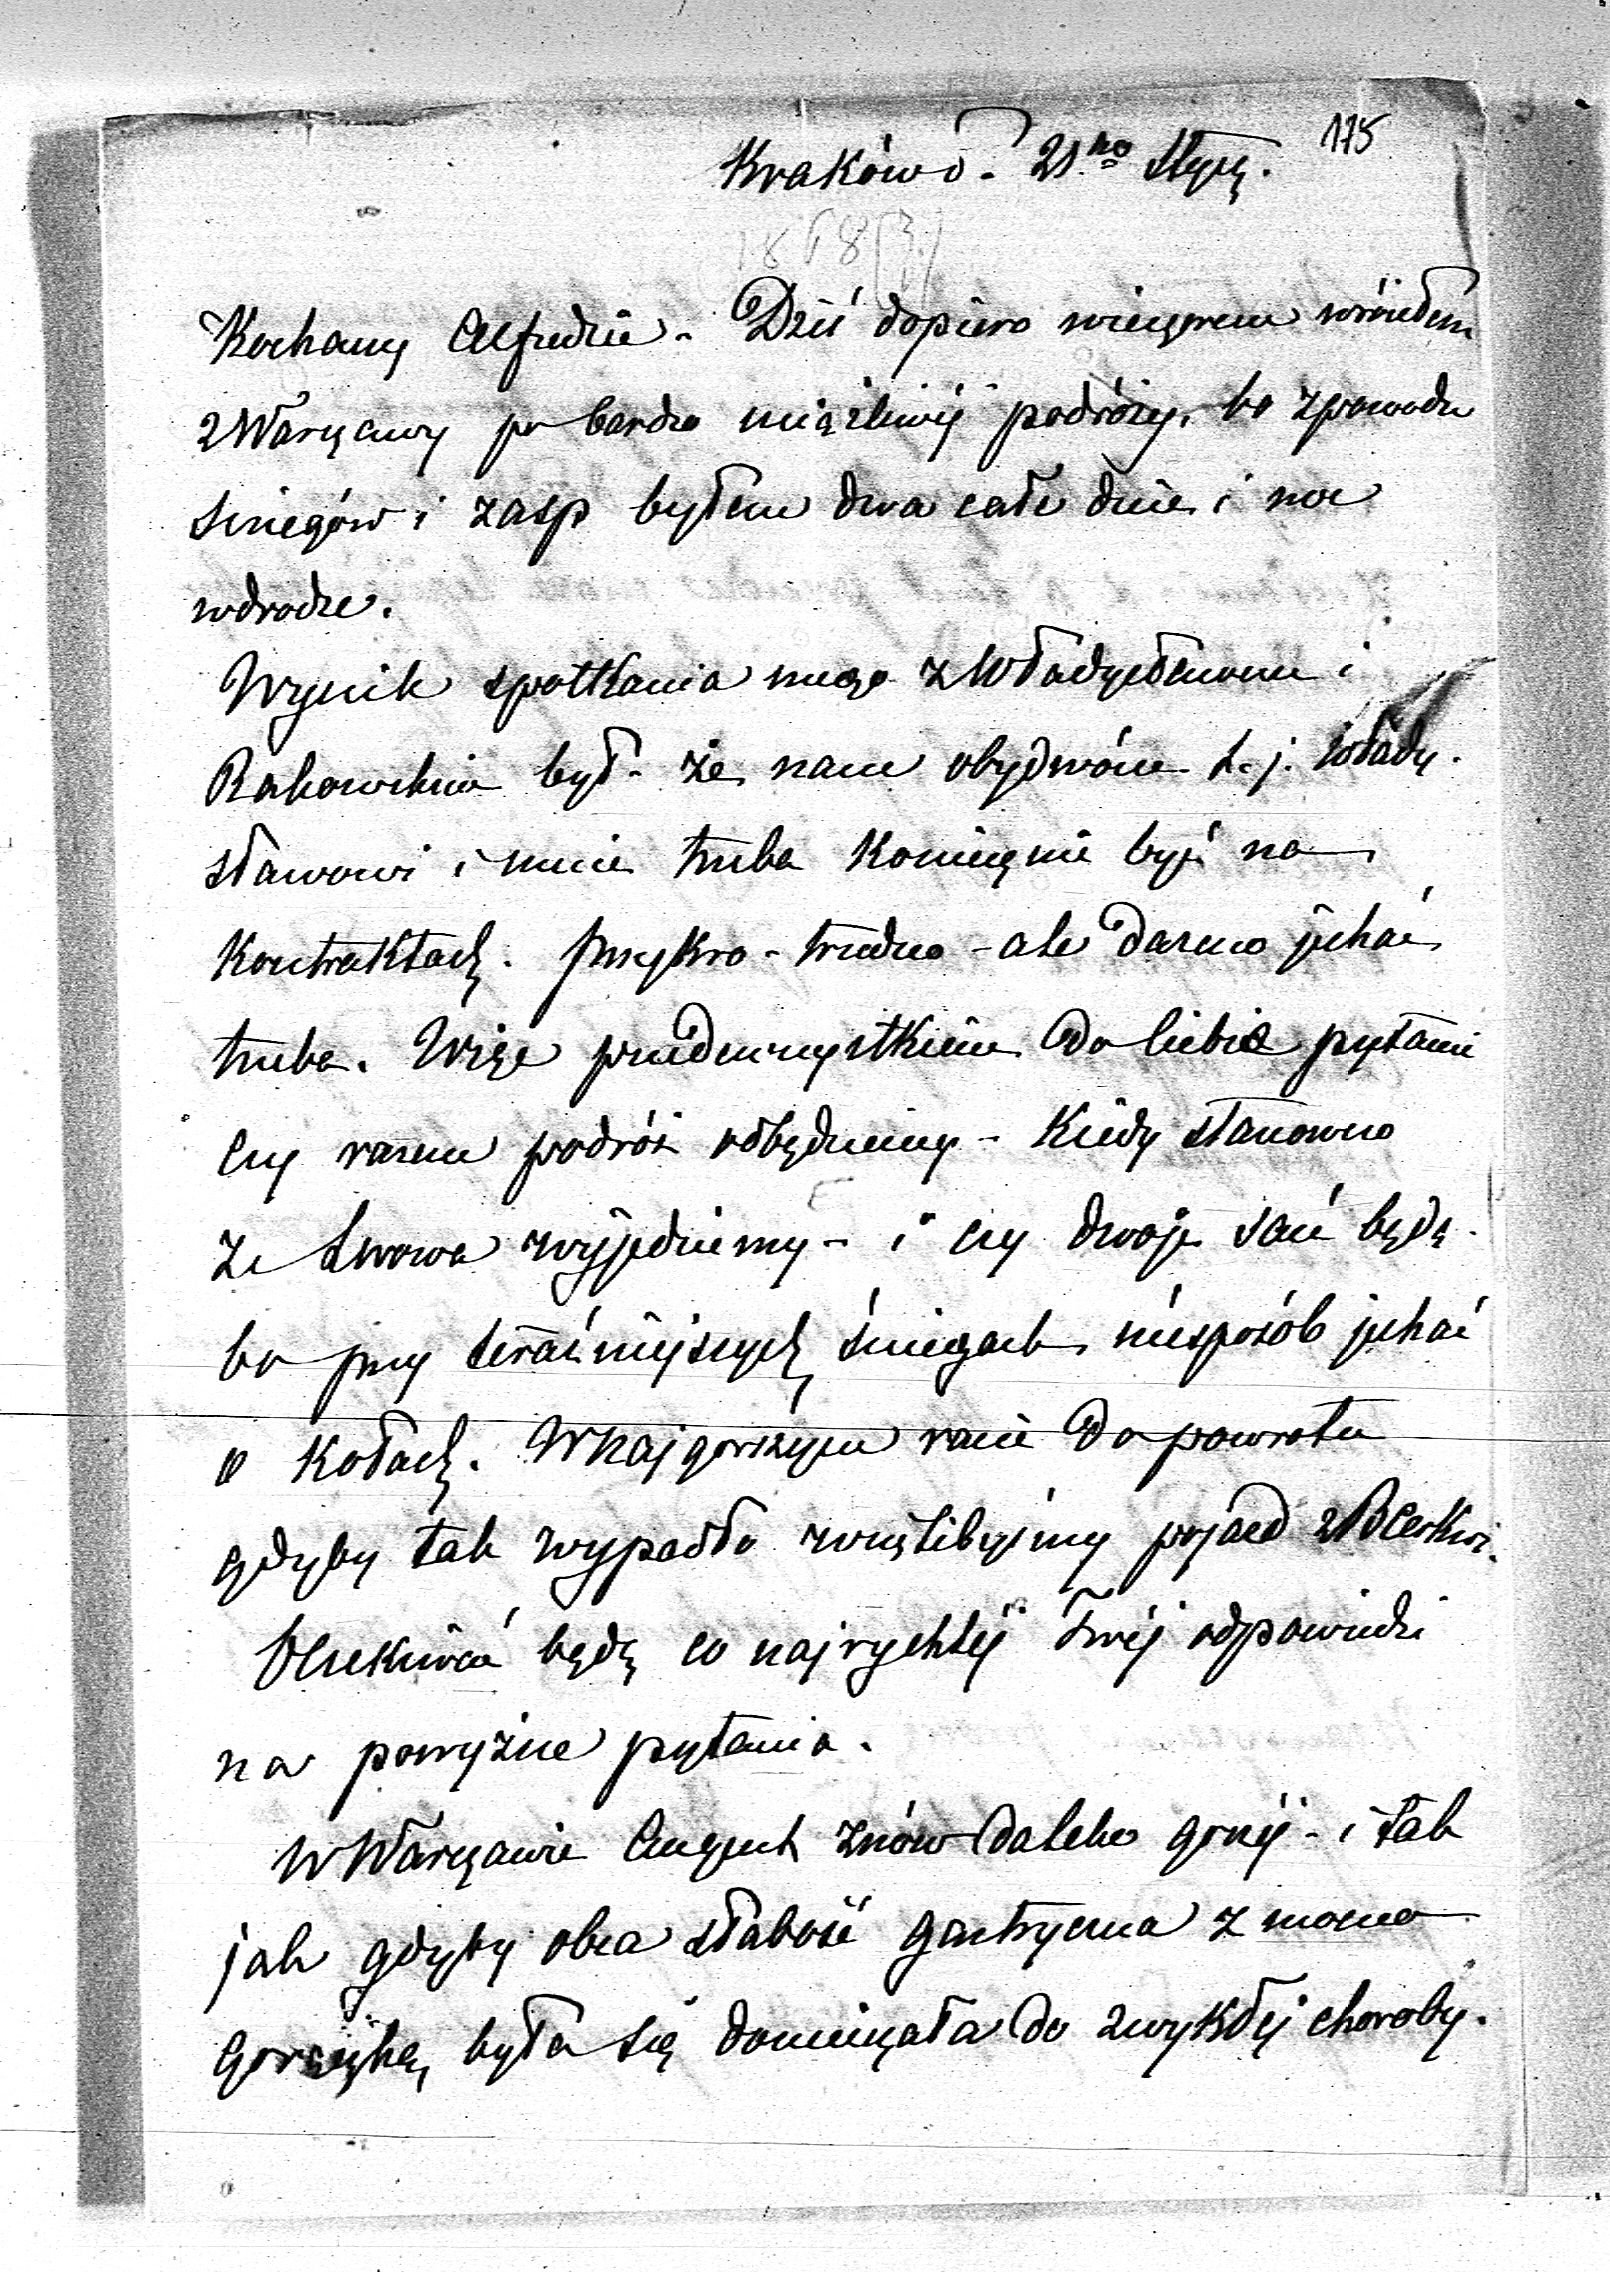 175
Kraków d. 21.go Stycz.
1868(?)
Kochany Alfredzie - Dziś dopiero wieczorem wróciłem
z Warszawy po bardzo uciążliwéj podróży, bo z powodu
śniegów i zasp byłem dwa całe dnie i noc
w drodze.
Wynik spotkania mego z Władysławem i
Rakowskim był - że nam obydwóm t. j. Włady-
sławowi i mnie trzeba koniecznie być na
kontraktach. Przykro - trudno - ale darmo jechać
trzeba. Więc przedewszystkiém do Ciebie pytanie
czy razem podróż odbędziemy - kiedy stanowczo
ze Lwowa wyjedziemy - i czy dwoje sań będą -
bo przy teraźniejszych śniegach niesposób jechać
o kołach. W najgorszym razie do powrotu
gdyby tak wypadło wzięlibyśmy pojazd z B Cerkwi.
Oczekiwać będę co najrychléj Twéj odpowiedzi
na powyższe pytania.
W Warszawie August znów daleko gorzéj - i tak
jak gdyby obca słabość gastryczna z mocną
gorączką była się domięszała do zwykłéj choroby.